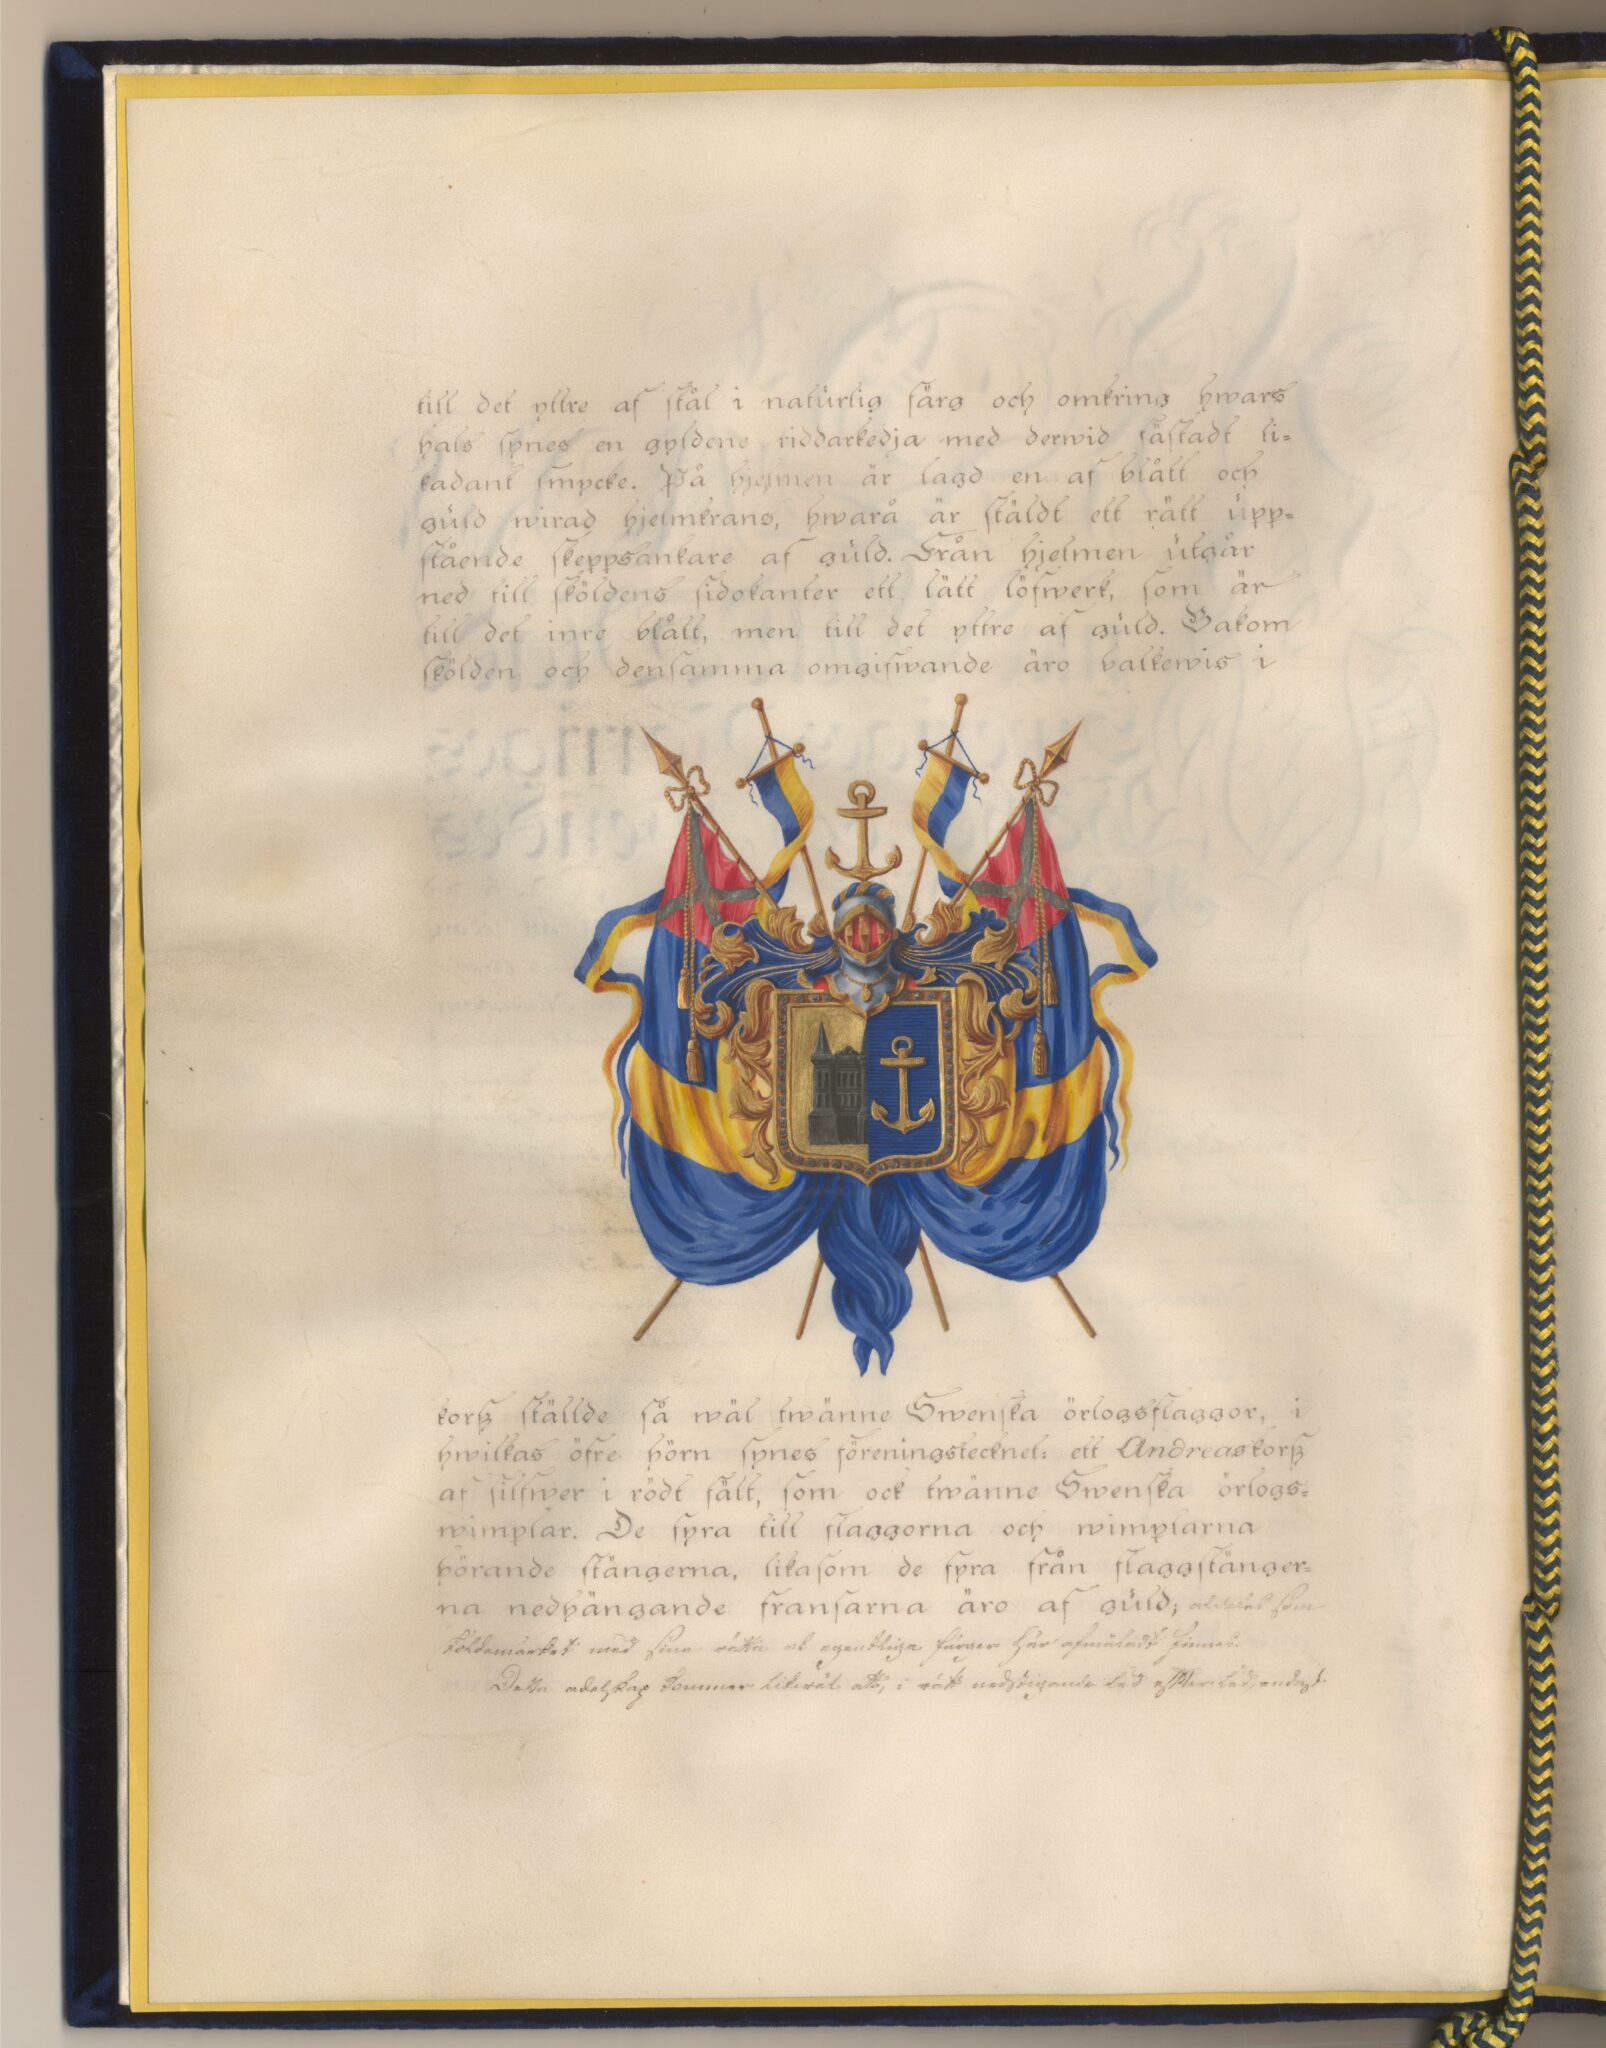 till det yttre af stål i natürlig färg och omkring hwars
hals synes en gyldene riddarkedja med derwid fästadt li=
kadant smycke. På hjelmen är lagd en af blått och
güld wirad hjelmkrans, hwarå är stäldt ett rätt üpp=
stående skeppsankare af güld. Från hjelmen ütgår
ned till sköldens sidokanter ett lätt löfwerk, som är
till det inre blått, men till det yttre af güld. Bakom
skölden och densamma omgifwande äro balkewis i
korß ställde så wäl twänne Swenska örlogsflaggor, i
hwilkas öfre hörn synes föreningstecknet: ett Andreaskorß
af silfwer i rödt fält, som ock twänne Swenska örlogs=
wimplar. De fyra till flaggorna och wimplarna
hörande stängerna, likasom de fyra från flaggstänger=
na nedhängande fransarna äro af güld; aldeles som
Sköldemärket med sina rätta och egentliga färger här afmåladt finnes.
Detta adelskap kommer likwäl att, i rätt nedstigande led efter led, endast